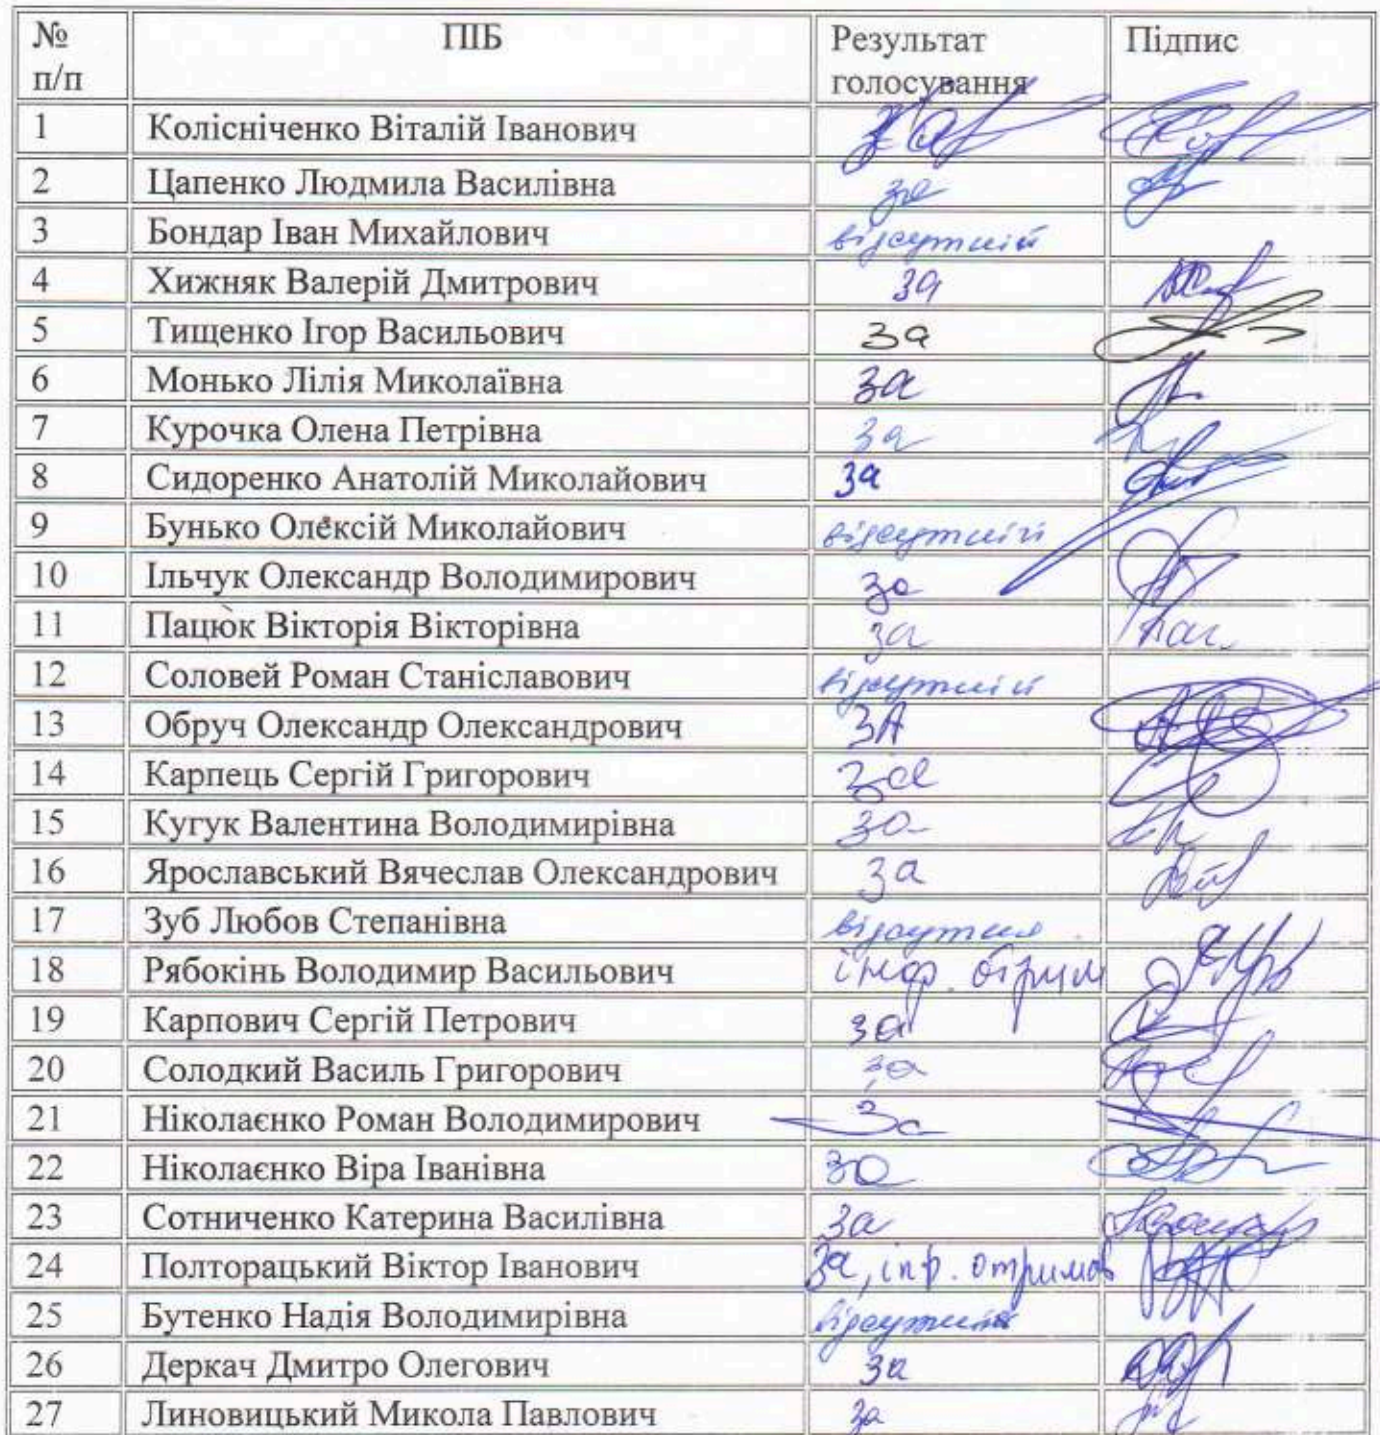 № п/п ПІБ Результат голосування Підпис
1 Колісніченко Віталій Іванович За
2 Цапенко Людмила Василівна за
3 Бондар Іван Михайлович відсутній
4 Хижняк Валерій Дмитрович за
5 Тищенко Ігор Васильович За
6 Монько Лілія Миколаївна За
7 Курочка Олена Петрівна За
8 Сидоренко Анатолій Миколайович За
9 Бунько Олексій Миколайович відсутній
10 Ільчук Олександр Володимирович За
11 Пацюк Вікторія Вікторівна за
12 Соловей Роман Станіславович відсутній
13 Обруч Олександр Олександрович ЗА
14 Карпець Сергій Григорович За
15 Кугук Валентина Володимирівна За
16 Ярославський Вячеслав Олександрович За
17 Зуб Любов Степанівна відсутня
18 Рябокінь Володимир Васильович інф.
19 Карпович Сергій Петрович за
20 Солодкий Василь Григорович за
21 Ніколаєнко Роман Володимирович За
22 Ніколаєнко Віра Іванівна За
23 Сотниченко Катерина Василівна За
24 Полторацький Віктор Іванович За, інф. отримав
25 Бутенко Надія Володимирівна
26 Деркач Дмитро Олегович За
27 Линовицький Микола Павлович За